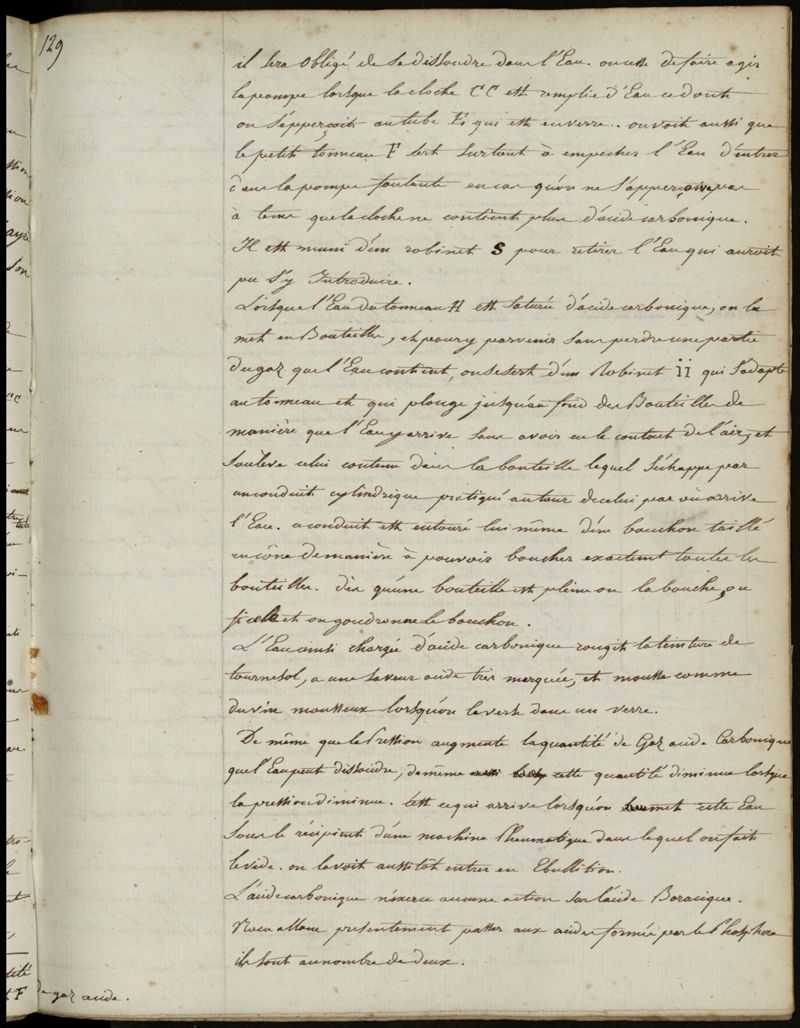 129
il sera obligé de se dissoudre dans l'Eau. on cesse de faire agir
la pompe lorsque la cloche CC est remplie d'Eau ce dont
on s'apperçoit au tube E, qui est en verre. on voit aussi que
le petit tonneau F sert surtout à empecher l'Eau d'entrer
dans la pompe foulante en cas qu'on ne s'apperçoive pas
à tems que la cloche ne contient plus d'acide carbonique.
Il est muni d'un robinet S pour retirer l'Eau qui auroit
pu s'y Introduire.
Lorsque l'Eau du tonneau H est saturée d'acide carbonique, on la
met en Bouteilles, et pour y parvenir sans perdre une partie
du gaz que l'Eau contient, on se sert d'un Robinet ii qui s'adapte
au tonneau et qui plonge jusqu'au fond des Bouteilles de
manière que l'Eau y arrive sans avoir eu le contact de l'air, et
soulève celui contenu dans la bouteille lequel s'échappe par
un conduit cylindrique pratiqué autour de celui par où arrive
l'Eau. ce conduit est entouré lui même d'un bouchon taillé
en cône de manière à pouvoir boucher exactement toutes les
bouteilles. dès qu'une bouteille est pleine on la bouche, on
ficelle et on goudronne le bouchon.
L'Eau ainsi chargée d'acide carbonique rougit la teinture de
tournesol, a une saveur acide très marquée, et mousse comme
du vin mousseux lorsqu'on la verse dans un verre.
De même que la Pression augmente la quantité de Gaz acide Carbonique
que l'Eau peut dissoudre, de même cette quantité diminue lorsque
la pression diminue. c'est ce qui arrive lorsqu'on met cette Eau
sous le récipient d'une machine Pneumatique dans lequel on fait
le vide. on la voit aussitôt entrer en Ebullition.
L'acide carbonique n'exerce aucune action sur l'acide Boracique.
Nous allons presentement passer aux acides formés par le Phosphore
ils sont au nombre de deux.
de gaz acide.